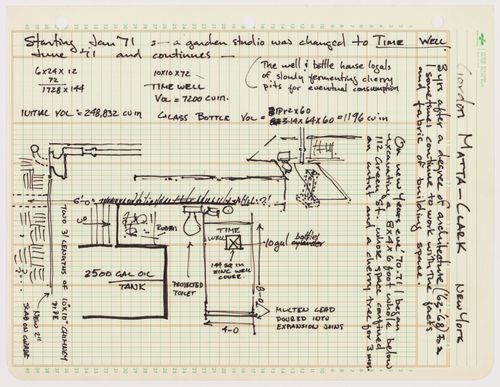 Starting Jan '71 :- a garden studio was changed to TIME WELL.
June '71 and continues -
6x24x12
72
1728x144
INITIAL VOL = 248,832 cu in
10x10x72
TIME WELL
VOL = 7200 cu in.
The well & bottle house logals
of slowly fermenting cherry
pits for eventual consumption
GLASS BOTTLE VOL = πr2x60
3.14x64x60 = 1196 cu in
Gordon MATTA-CLARK NEW YORK
8 yrs after a degree of architecture ('63-68)
I sometimes continue to work with the facts
and fabric of building space.
On new years eve '70-71 I began
excavating a 8x4x6 foot whole below
112 Greene St. whose space confined
an and a cherry tree for 3 mos.
6'-0
TWO 3' LENGTHS OF 10"x10" CHIMNEY
PIPE
NEW 2"
SLAB ON GRADE
2500 GAL OIL
TANK
PROJECTED
TOILET
TIME
WELL
144 SQ IN
ZINC WELL
COVER.
10 gal bottle
8-0
4-0
MOLTEN LEAD
POURED INTO
EXPANSION JOINS